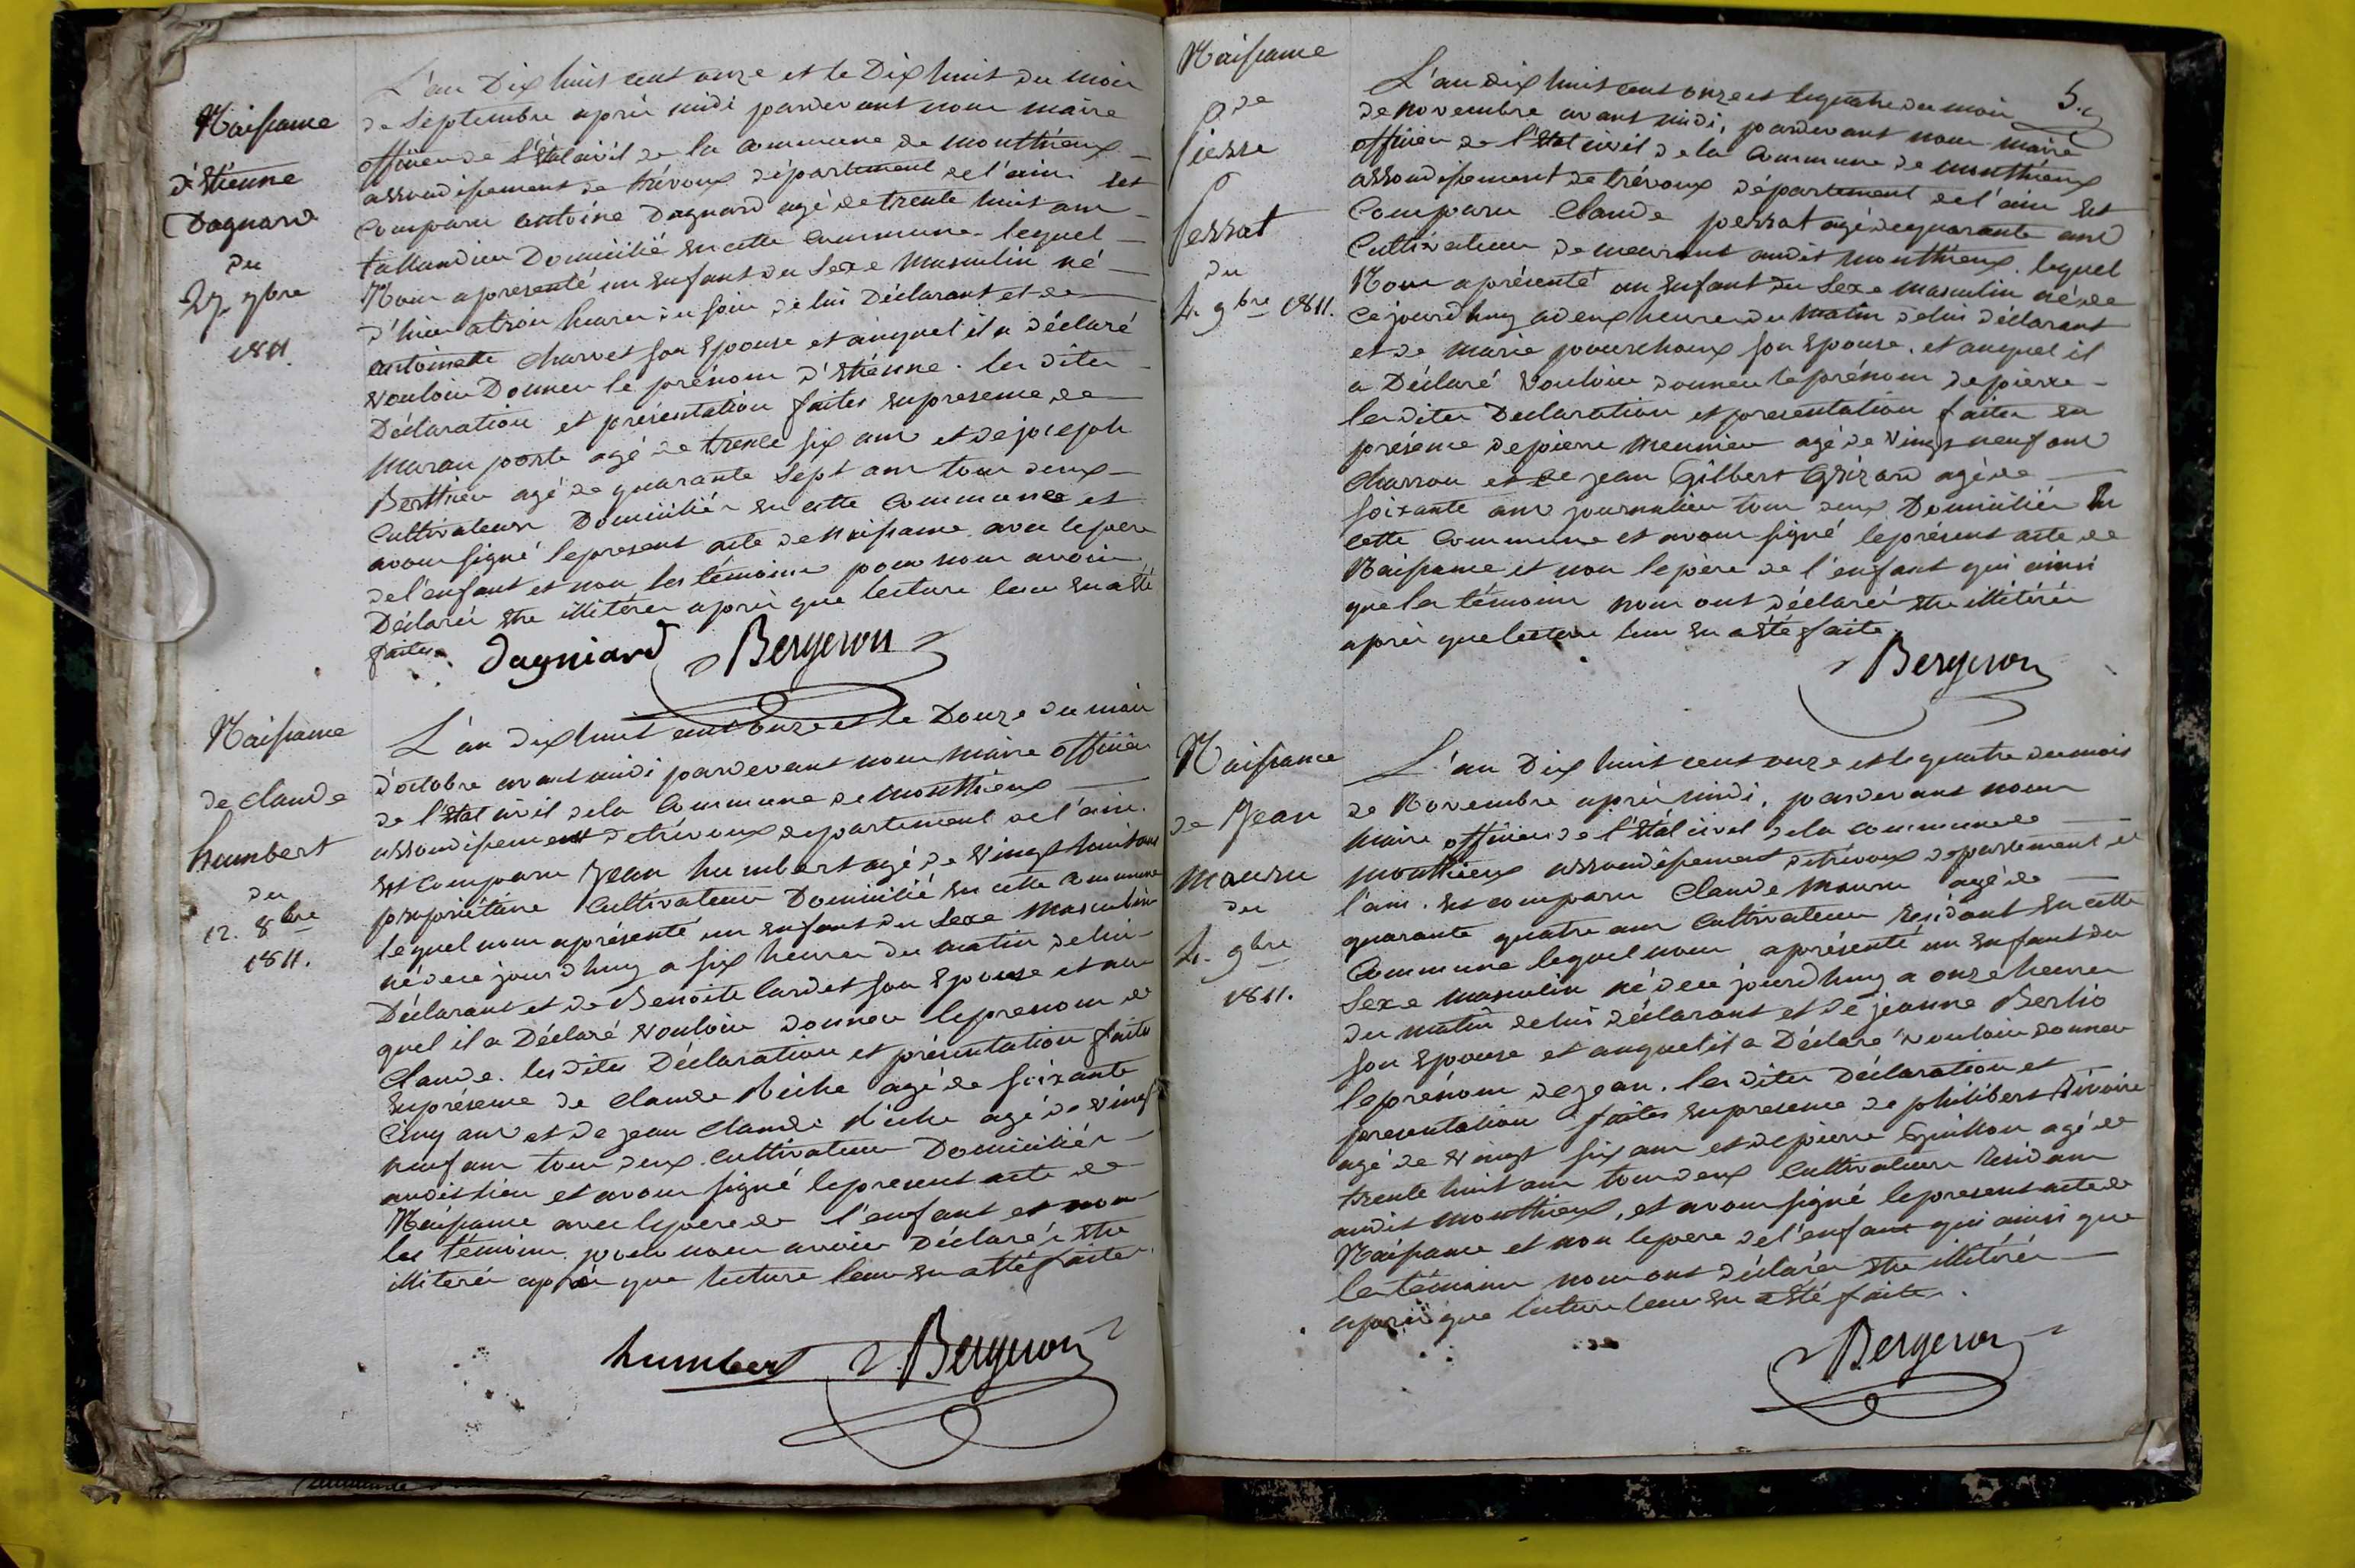 Naissance
d'Etienne
Dagnard
du
27. 9bre
1811.
L'an Dix huit cent onze et le Dix huit du mois
de Septembre après midi pardevant nous maire
officier de l'état civil de la commune de monthieux
arrondissement de trévoux département de l'ain est
comparu antoine Dagnard agé de trente huit ans
taillandier Domicilié en cette Commune lequel
Nous a présenté un enfant du Sexe Masculin né
d'hier a trois heures du soir de lui Déclarant et de
antoinette Charvet son Epouse et auquel il a déclaré
vouloir Donner le prénom d'Etienne. les dites
Déclaration et présentation faites en presence de
agé de trente six ans et de joseph
Berthier agé de quarante Sept ans tous deux
Cultivateurs Domiciliés en cette Commune et
avons signé le present acte de naissance avec le père
de l'enfant et non les témoins pour nous avoir
Déclarés être illitérés après que lecture leur en a été
faite. Dagniard Bergeron
Naissance
de claude
humbert
du
12. 8bre
1811.
L'an dix huit cent onze et le Douze du mois
d'octobre avant midi pardevant nous maire officier
de l'Etat civil de la Commune de Monthieux
arrondissement de trévoux département de l'ain.
Est comparu Jean humbert agé de Vingt huit ans
propriétaire Cultivateur Domicilié en cette Commune
lequel nous a présenté un enfant du Sexe Masculin
né de ce jourd'huy a six heures du matin de lui
Déclarant et de Benoite lardet son Epouse et au
quel il a Déclaré Vouloir donner le prenom de
Claude. les dites Déclaration et présentation faites
en présence de claude agé de soixante
Cinq ans et de jean claude agé de vingt
neuf ans tous deux Cultivateurs Domiciliés
audit lieu et avons signé le present acte de
Naissance avec le pere de l'enfant et non
les témoins pour nous avoir Déclarés être
illiterés après que lecture leur en a été faite.
humbert Bergeron
Naissance
de
pierre
Perrat
du
4. 9bre 1811.
5.
L'an dix huit cent onze et le quatre du mois
de novembre avant midi, pardevant nous maire
officier de l'Etat civil de la Commune de monthieux
arrondissement de trévoux département de l'ain est
Comparu Claude perrat agé de quarante ans
Cultivateur demeurant audit Monthieux. lequel
Nous a présenté un Enfant du Sexe Masculin né de
ce jourd'huy a deux heures du matin de lui déclarant
et de Marie pourchoux son Epouse, et auquel il
a Déclaré Vouloir donner le prénom de pierre
les dites Declaration et presentation faites en
présence de pierre Meunier agé de Vingt neuf ans
charron et de jean Gilbert Grizard agé de
soixante ans journalier tous deux Domiciliés En
cette Commune et avons signé le présent acte de
Naissance et non le père de l'enfant qui ainsi
que les témoins nous ont déclarés être illitérés
après que lecture leur en a été faite.
Bergeron
Naissance
de Jean
Mauru
du
4. 9bre
1811.
L'an Dix huit cent onze et le quatre du mois
de Novembre après midi, pardevant nous
Maire officier de l'Etat civil de la commune de
Monthieux arrondissement de trévoux departement de
l'ain. est comparu Claude Mauru agé de
quarante quatre ans Cultivateur résidant en cette
Commune lequel nous a présenté un enfant du
Sexe Masculin né de ce jourd'huy a onze heures
du matin de lui déclarant et de jeanne Berlio
son Epouse et auquel il a Déclaré vouloir donner
le prénom de jean. les dites Déclaration et
presentation faites en presence de philibert Rivoire
agé de Vingt six ans et de pierre Guillon agé de
trente huit ans tous deux Cultivateurs residans
audit Monthieux, et avons signé le present acte de
Naissance et non le pere de l'enfant qui ainsi que
les témoins nous ont déclarés être illitérés
après que lecture leur en a été faite.
Bergeron